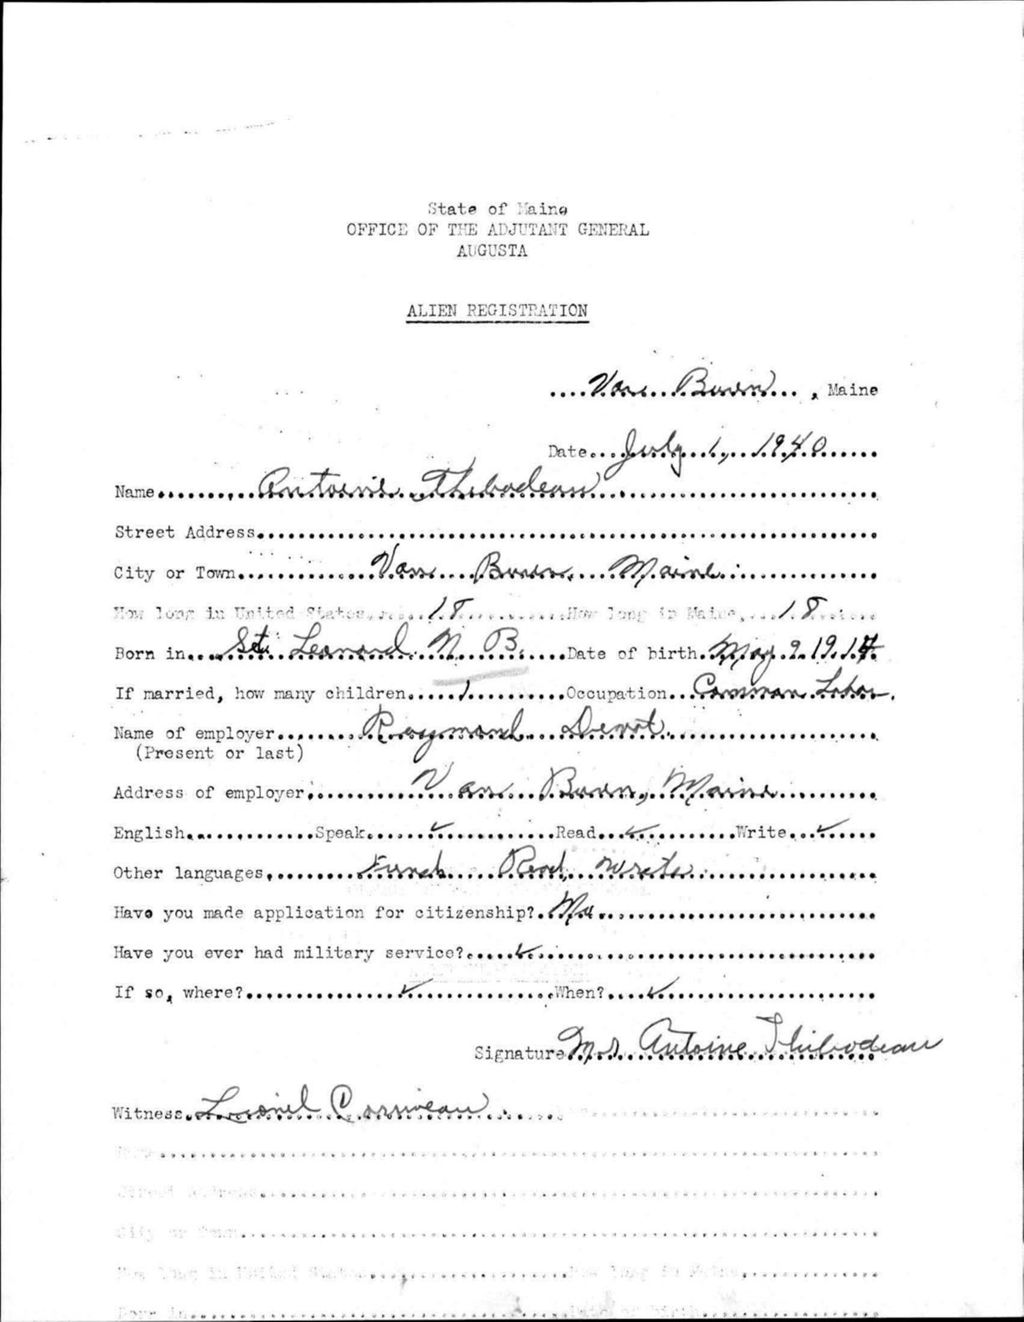 State of Maine
OFFICE OF THE ADJUTANT GENERAL
AUGUSTA
ALIEN REGISTRATION
Van Buren, Maine
Date July 1, 1940
Name Antoine Thibodeau
Street Address
City or Town Van Buren, Maine
How long in United States 18 How long in Maine 18
Born in St. Leonard N B. Date of birth May 9 1914
If married, how many children 1 Occupation Common Labor
Name of employer Raymond
(Present or last)
Address of employer Van Buren, Maine
English Speak ✓ Read ✓ Write ✓
Other languages French Read, Write
Have you made application for citizenship? No
Have you ever had military service? ✓
If so, where? ✓ When? ✓
Signature Mr. Antoine Thibodeau
Witness Lionel Cormeau
Name
Street Address
City or Town
How long in United States How long in Maine
Born in Date of birth